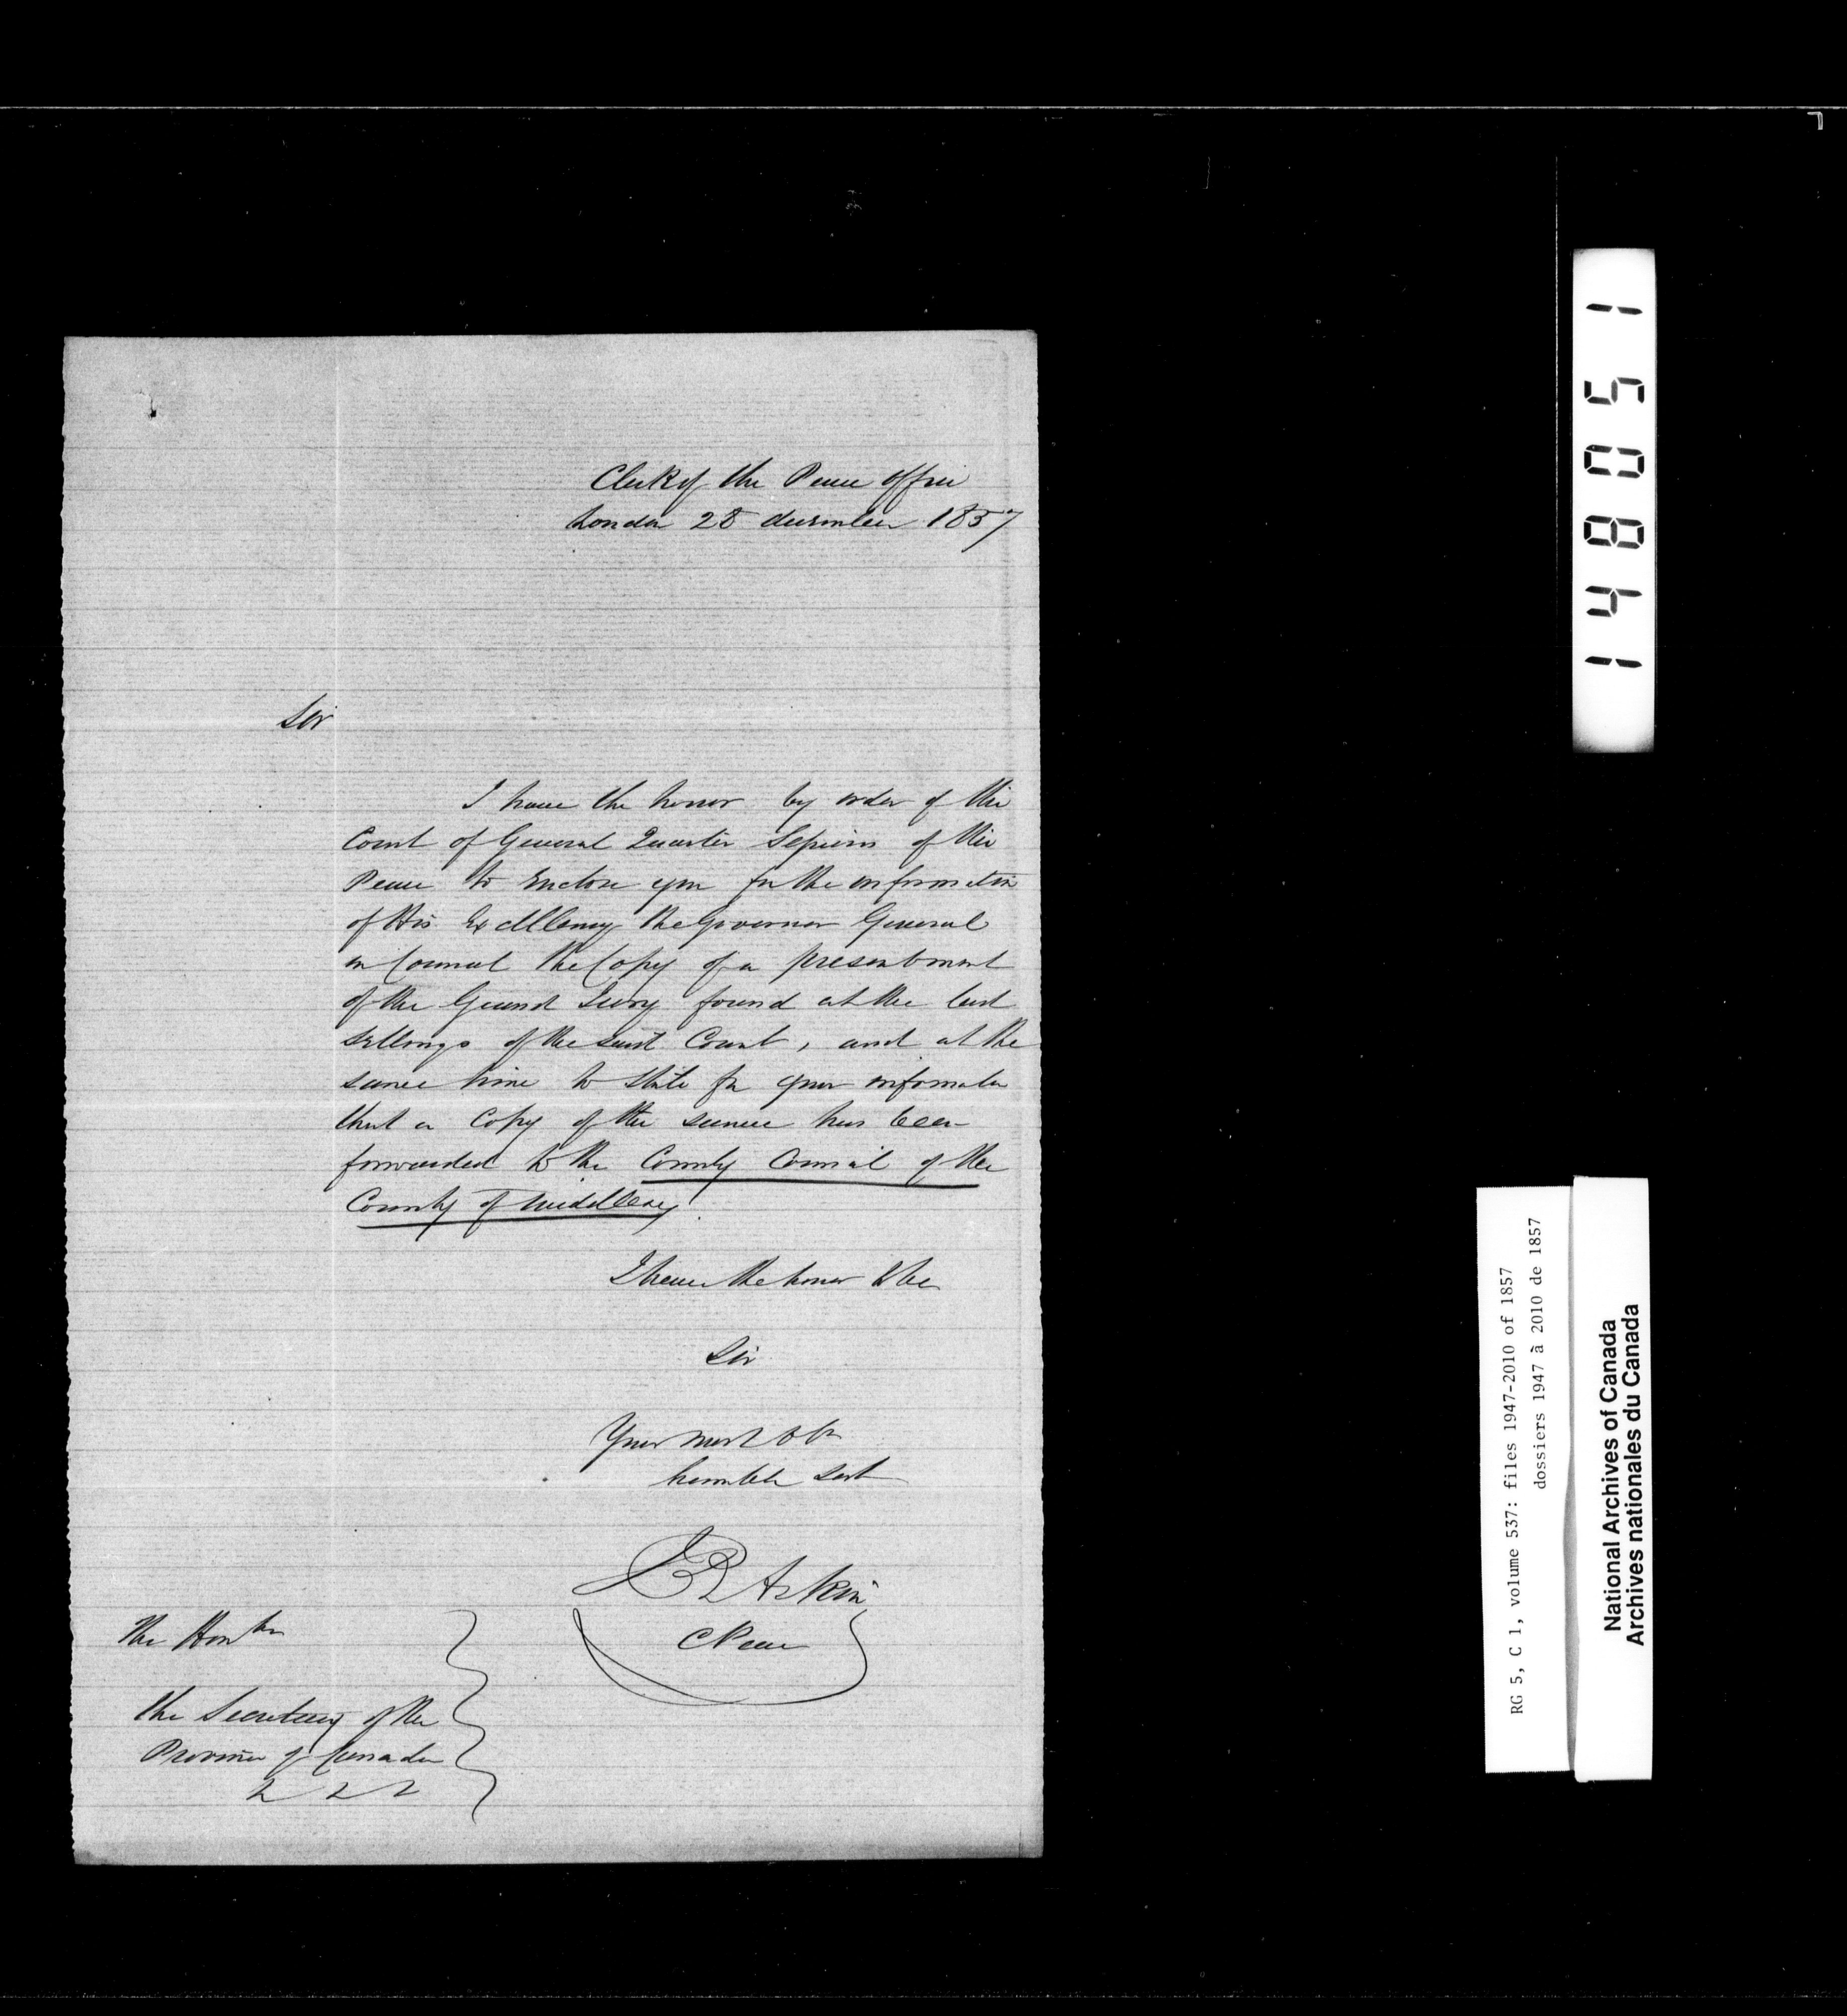 Clerk of the Peace office
London 28 december 1857
Sir
I have the honor by order of the
Court of General Quarter Sessions of the
Peace to Enclose you for the information
of His Excellency the Governor General
in Council the Copy of a presentment
of the Grand Jury found at the last
sittings of the said Court, and at the
same time to state for your information
that a Copy of the same has been
forwarded to the County Council of the
County of Middlesex.
I have the honor to be
Sir
Your most obt
humble Sert
J B Askin
C Peace
The Honble
the Secretary of the
Province of Canada
148051
RG 5, C 1, volume 537: files 1947-2010 of 1857
dossiers 1947 à 2010 de 1857
National Archives of Canada
Archives nationales du Canada